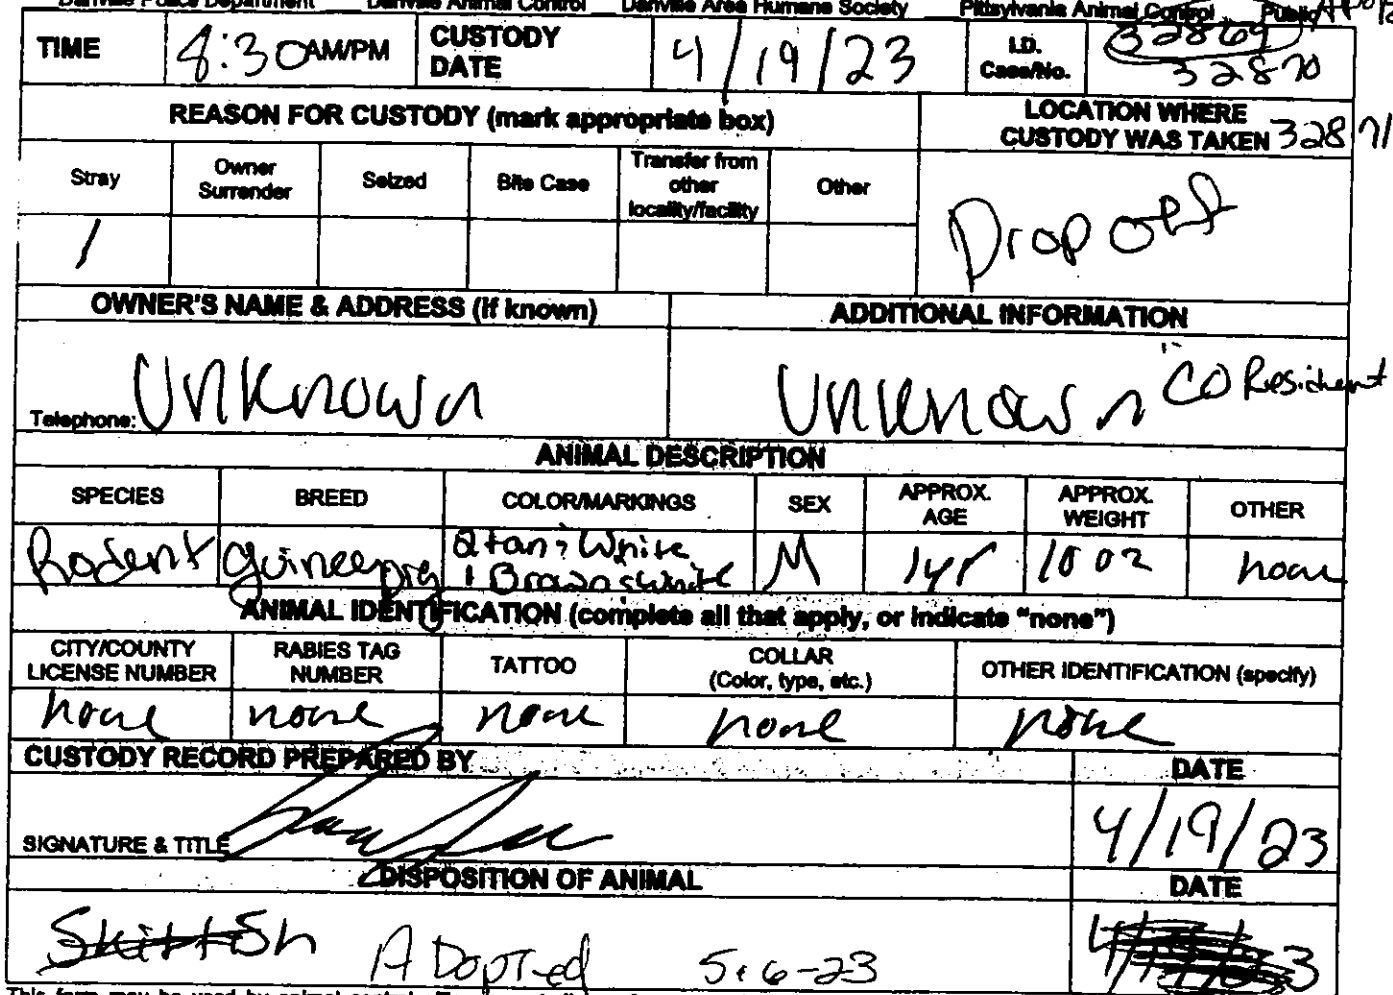 Danville Police Department Danville Animal Control Danville Area Humane Society Pittsylvania Animal Control Public
TIME 8:30 AM/PM CUSTODY DATE 4/19/23 I.D. Case/No. 32869
32870
REASON FOR CUSTODY (mark appropriate box) LOCATION WHERE CUSTODY WAS TAKEN 32871
Stray Owner Surrender Seized Bite Case Transfer from other locality/facility Other
/ Drop off
OWNER'S NAME & ADDRESS (if known) ADDITIONAL INFORMATION
Unknown Unknown CO Resident
Telephone:
ANIMAL DESCRIPTION
SPECIES BREED COLOR/MARKINGS SEX APPROX. AGE APPROX. WEIGHT OTHER
Rodent guineapig 2 tan & White M 1yr 10 oz none
1 Brown & White
ANIMAL IDENTIFICATION (complete all that apply, or indicate "none")
CITY/COUNTY LICENSE NUMBER RABIES TAG NUMBER TATTOO COLLAR (Color, type, etc.) OTHER IDENTIFICATION (specify)
none none none none none
CUSTODY RECORD PREPARED BY DATE
SIGNATURE & TITLE 4/19/23
DISPOSITION OF ANIMAL DATE
Skittish ADopTed 5-6-23